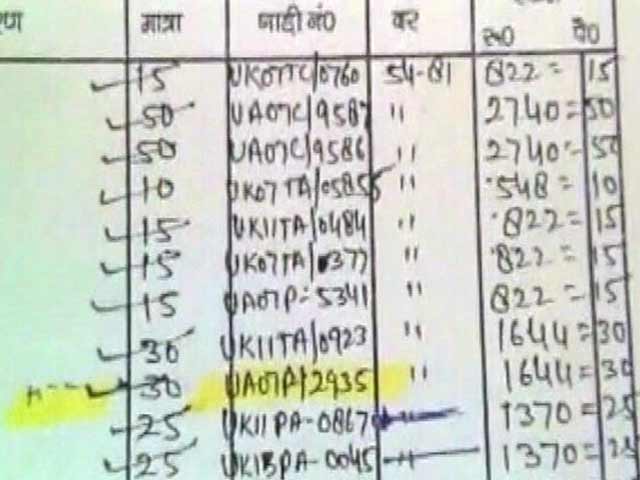 रण मात्रा गाड़ी नं0 दर रू0 पै0
15 UK07TC/0760 54-81 822= 15
50 UA07C/9587 " 2740=50
50 UA07C/9586 " 2740=50
10 UK07TA/0585 " 548= 10
15 UK11TA/0484 " 822= 15
15 UK07TA/0377 " 822= 15
15 UA07P-5341 " 822= 15
30 UK11TA/0923 " 1644=30
30 UA07P/2935 " 1644=30
25 UK11PA-0867 1370=25
25 UK13PA-0045 " 1370=25